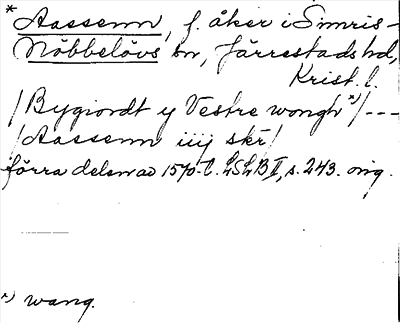 * Aassenn, f. åker i Simris-
Nöbbelövs sn, Järrestads hd,
Krist. l.
/Bygiordt y Vestre wongh*)/ ---
/Aassenn iiij skr/
förra delen av 1570-t. LSLB II, s. 243. orig.
*) wang.